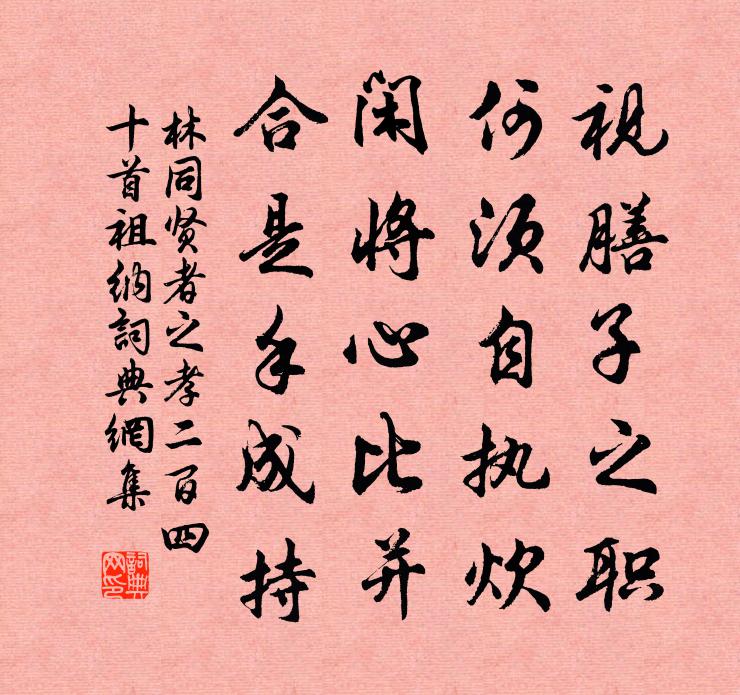 视膳子之职
何须自执炊
闲将心比并
合是手成持
林同贤者之孝二百四
十首祖纳詞典網集
詞典网印